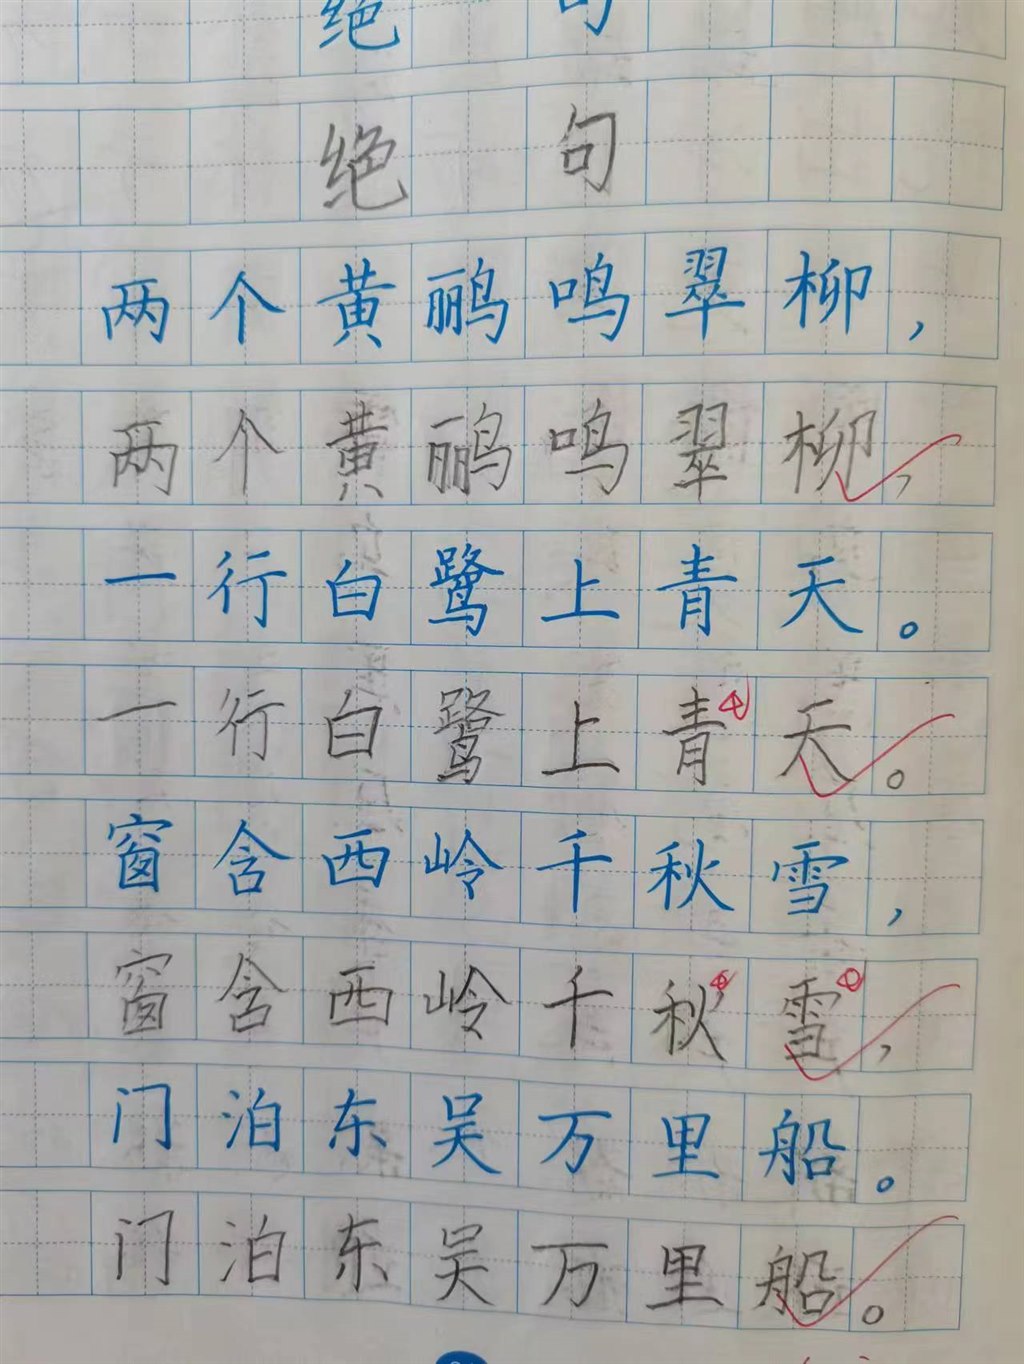 绝 句
绝 句
两个黄鹂鸣翠柳，
两个黄鹂鸣翠柳，
一行白鹭上青天。
一行白鹭上青天。
窗含西岭千秋雪，
窗含西岭千秋雪，
门泊东吴万里船。
门泊东吴万里船。